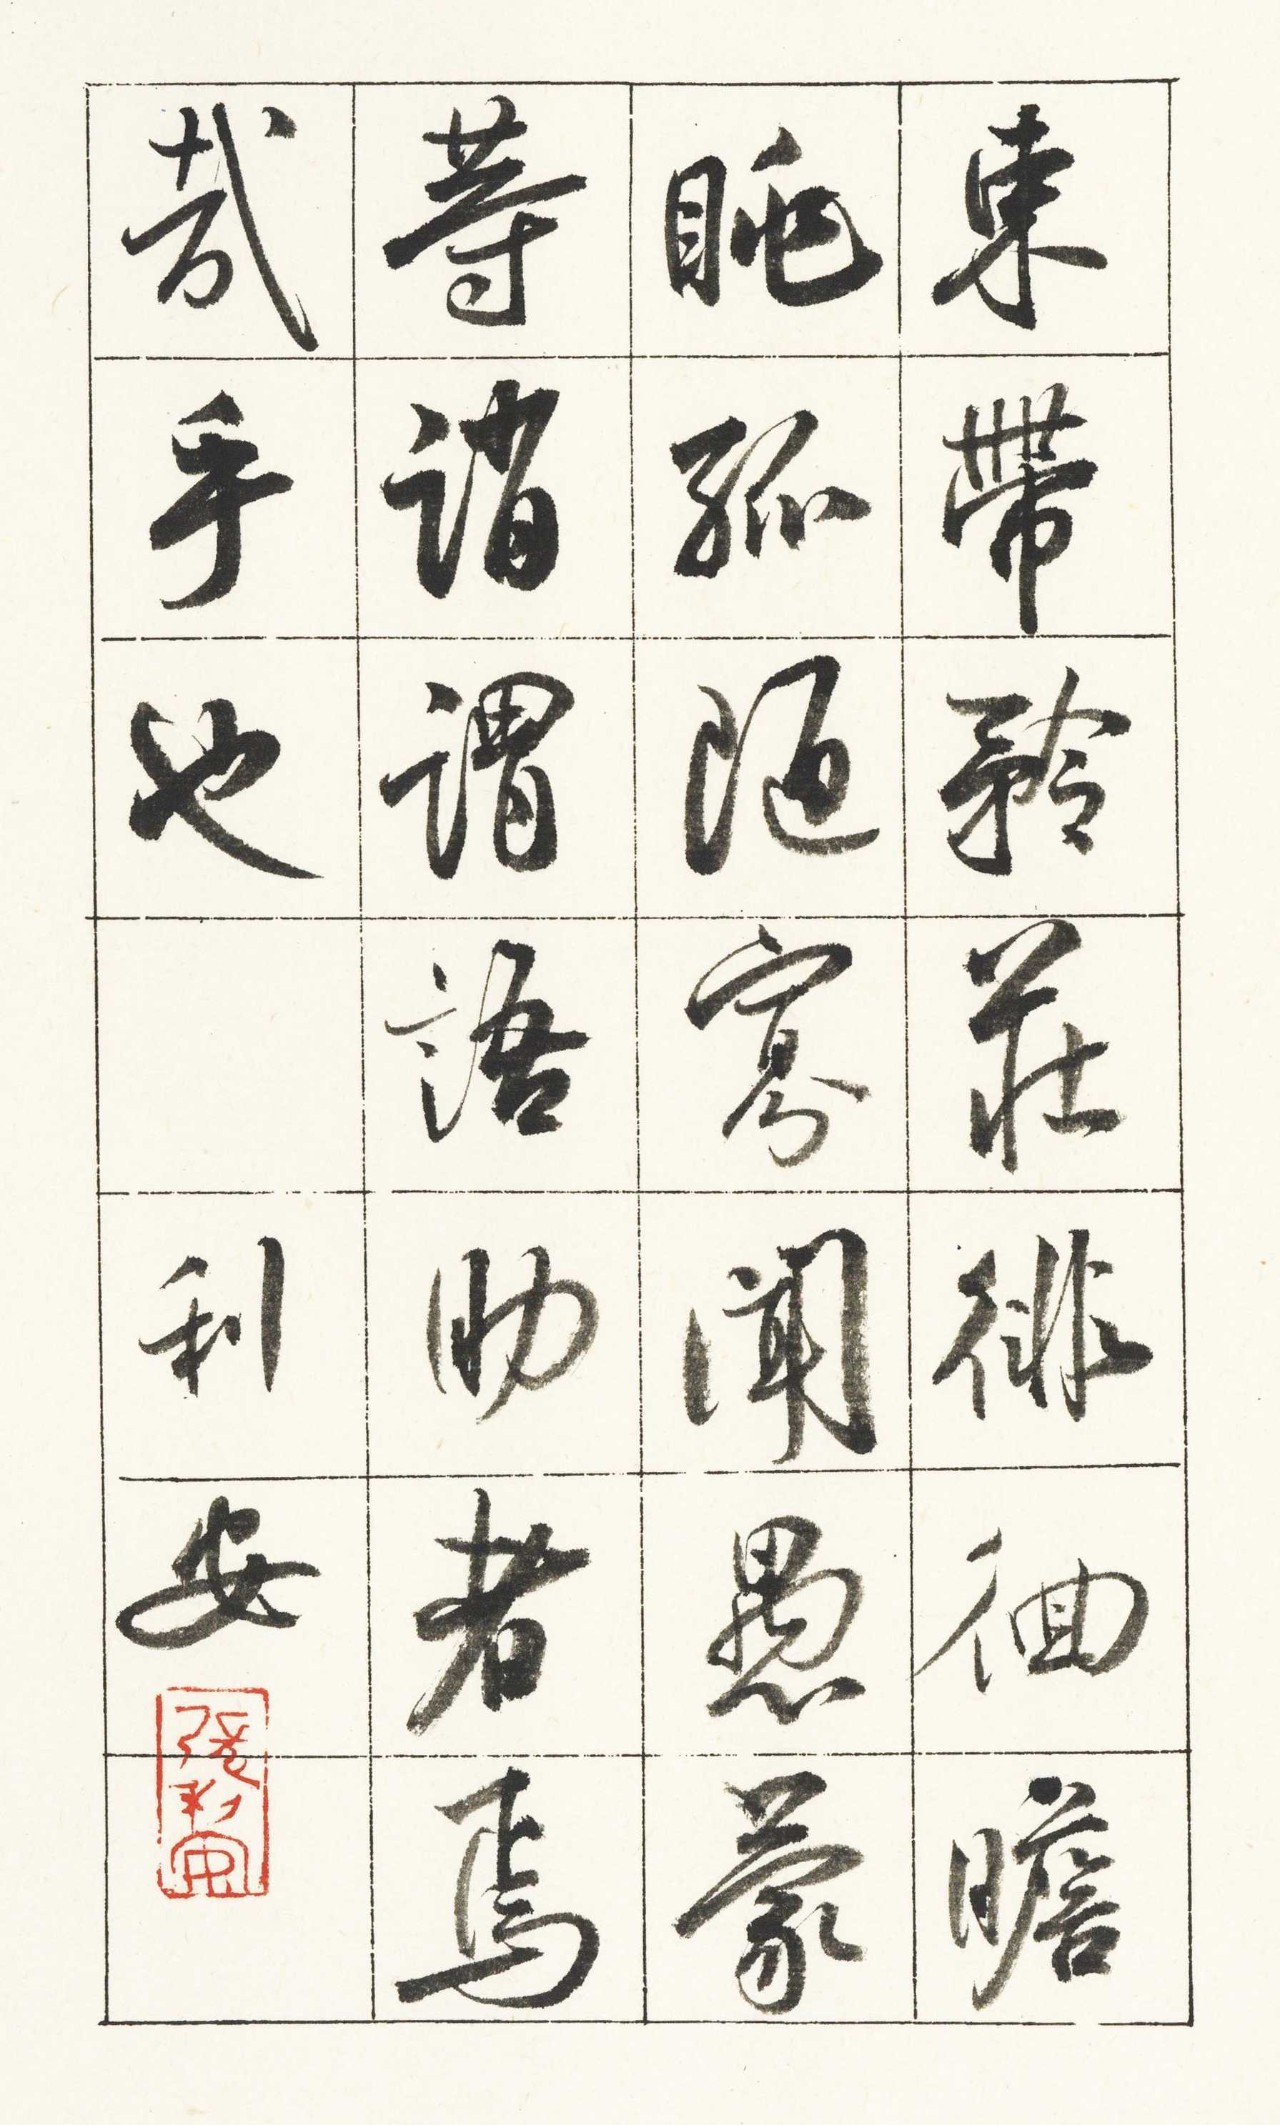 束帶矜莊徘徊瞻
眺孤陋寡聞愚蒙
等誚謂語助者焉
哉乎也
利安
張利安